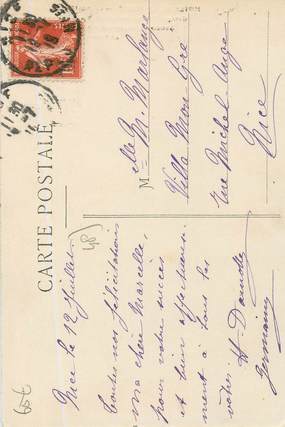 CARTE POSTALE
Nice le 12 Juillet
Toutes nos félicitations
ma chère Marcelle,
pour votre succès
et bien affectueuse-
ment à tous les
vôtres.
Germaine
M
elle M.
Villa Mon
rue Michel Ange
Nice